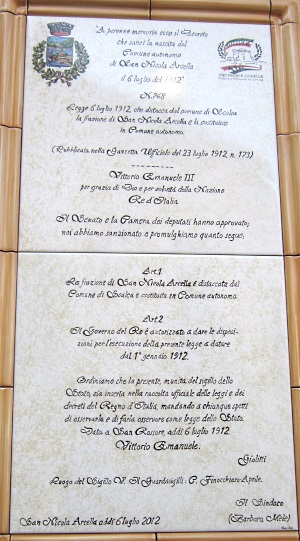 A perenne memoria ecco il Decreto
che sancì la nascita del
Comune autonomo
di San Nicola Arcella
il 6 luglio del 1912
N.768
Legge 6 luglio 1912, che distacca dal comune di Scalea
la frazione di San Nicola Arcella e la costituisce
in Comune autonomo.
(Pubblicata nella Gazzetta Ufficiale del 23 luglio 1912, n. 173)
Vittorio Emanuele III
per grazia di Dio e per volontà della Nazione
Re d'Italia
Il Senato e la Camera dei deputati hanno approvato;
noi abbiamo sanzionato e promulghiamo quanto segue:
Art.1
La frazione di San Nicola Arcella è distaccata dal
Comune di Scalea e costituita in Comune autonomo.
Art.2
Il Governo del Re è autorizzato a dare le disposi-
zioni per l'esecuzione della presente legge a datare
dal 1° gennaio 1912.
Ordiniamo che la presente, munita del sigillo dello
Stato, sia inserta nella raccolta ufficiale delle leggi e dei
decreti del Regno d'Italia, mandando a chiunque spetti
di osservarla e di farla osservare come legge dello Stato.
Data a San Rossore, addì 6 luglio 1912.
Vittorio Emanuele.
Giolitti
Luogo del Sigillo V. Il Guardasigilli: C. Finocchiaro-Aprile.
Il Sindaco
San Nicola Arcella addì 6 luglio 2012
(Barbara Mele)